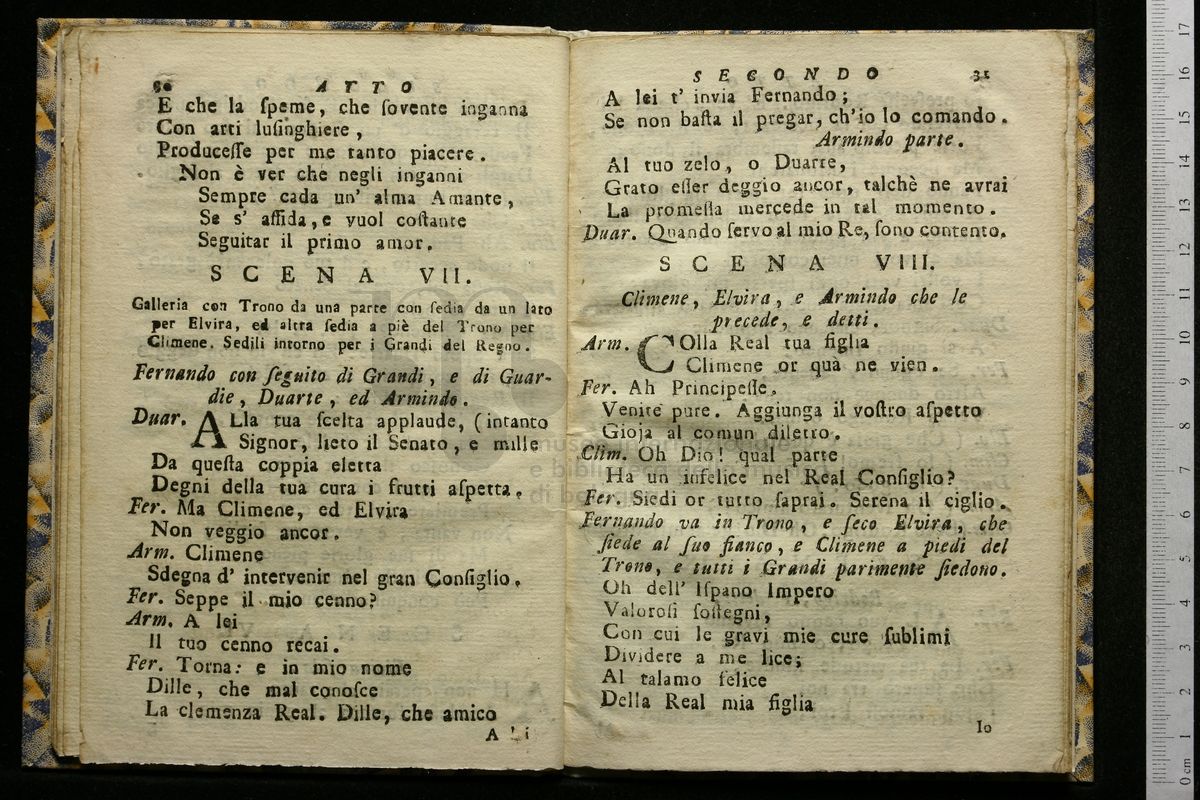 ATTO
E che la ſpeme, che ſovente inganna
Con arti luſinghiere,
Produceſſe per me tanto piacere.
Non è ver che negli inganni
Sempre cada un' alma Amante,
Se s' affida, e vuol coſtante
Seguitar il primo amor.
SCENA VII.
Galleria con Trono da una parte con ſedia da un lato
per Elvira, ed altra ſedia a piè del Trono per
Climene. Sedili intorno per i Grandi del Regno.
Fernando con ſeguito di Grandi, e di Guar-
die, Duarte, ed Armindo.
Duar. ALla tua ſcelta applaude, (intanto
Signor, lieto il Senato, e mille
Da queſta coppia eletta
Degni della tua cura i frutti aſpetta.
Fer. Ma Climene, ed Elvira
Non veggio ancor.
Arm. Climene
Sdegna d' intervenir nel gran Conſiglio.
Fer. Seppe il mio cenno?
Arm. A lei
Il tuo cenno recai.
Fer. Torna: e in mio nome
Dille, che mal conoſce
La clemenza Real. Dille, che amico
A lei
SECONDO 31
A lei t' invia Fernando;
Se non baſta il pregar, ch'io lo comando.
Armindo parte.
Al tuo zelo, o Duarte,
Grato eſſer deggio ancor, talchè ne avrai
La promeſſa mercede in tal momento.
Duar. Quando ſervo al mio Re, ſono contento.
SCENA VIII.
Climene, Elvira, e Armindo che le
precede, e detti.
Arm. COlla Real tua figlia
Climene or quà ne vien.
Fer. Ah Principeſſe,
Venite pure. Aggiunga il voſtro aſpetto
Gioja al comun diletto.
Clim. Oh Dio! qual parte
Ha un infelice nel Real Conſiglio?
Fer. Siedi or tutto ſaprai. Serena il ciglio.
Fernando va in Trono, e ſeco Elvira, che
ſiede al ſuo fianco, e Climene a piedi del
Trono, e tutti i Grandi parimente ſiedono.
Oh dell' Iſpano Impero
Valoroſi ſoſtegni,
Con cui le gravi mie cure ſublimi
Dividere a me lice;
Al talamo felice
Della Real mia figlia
Io